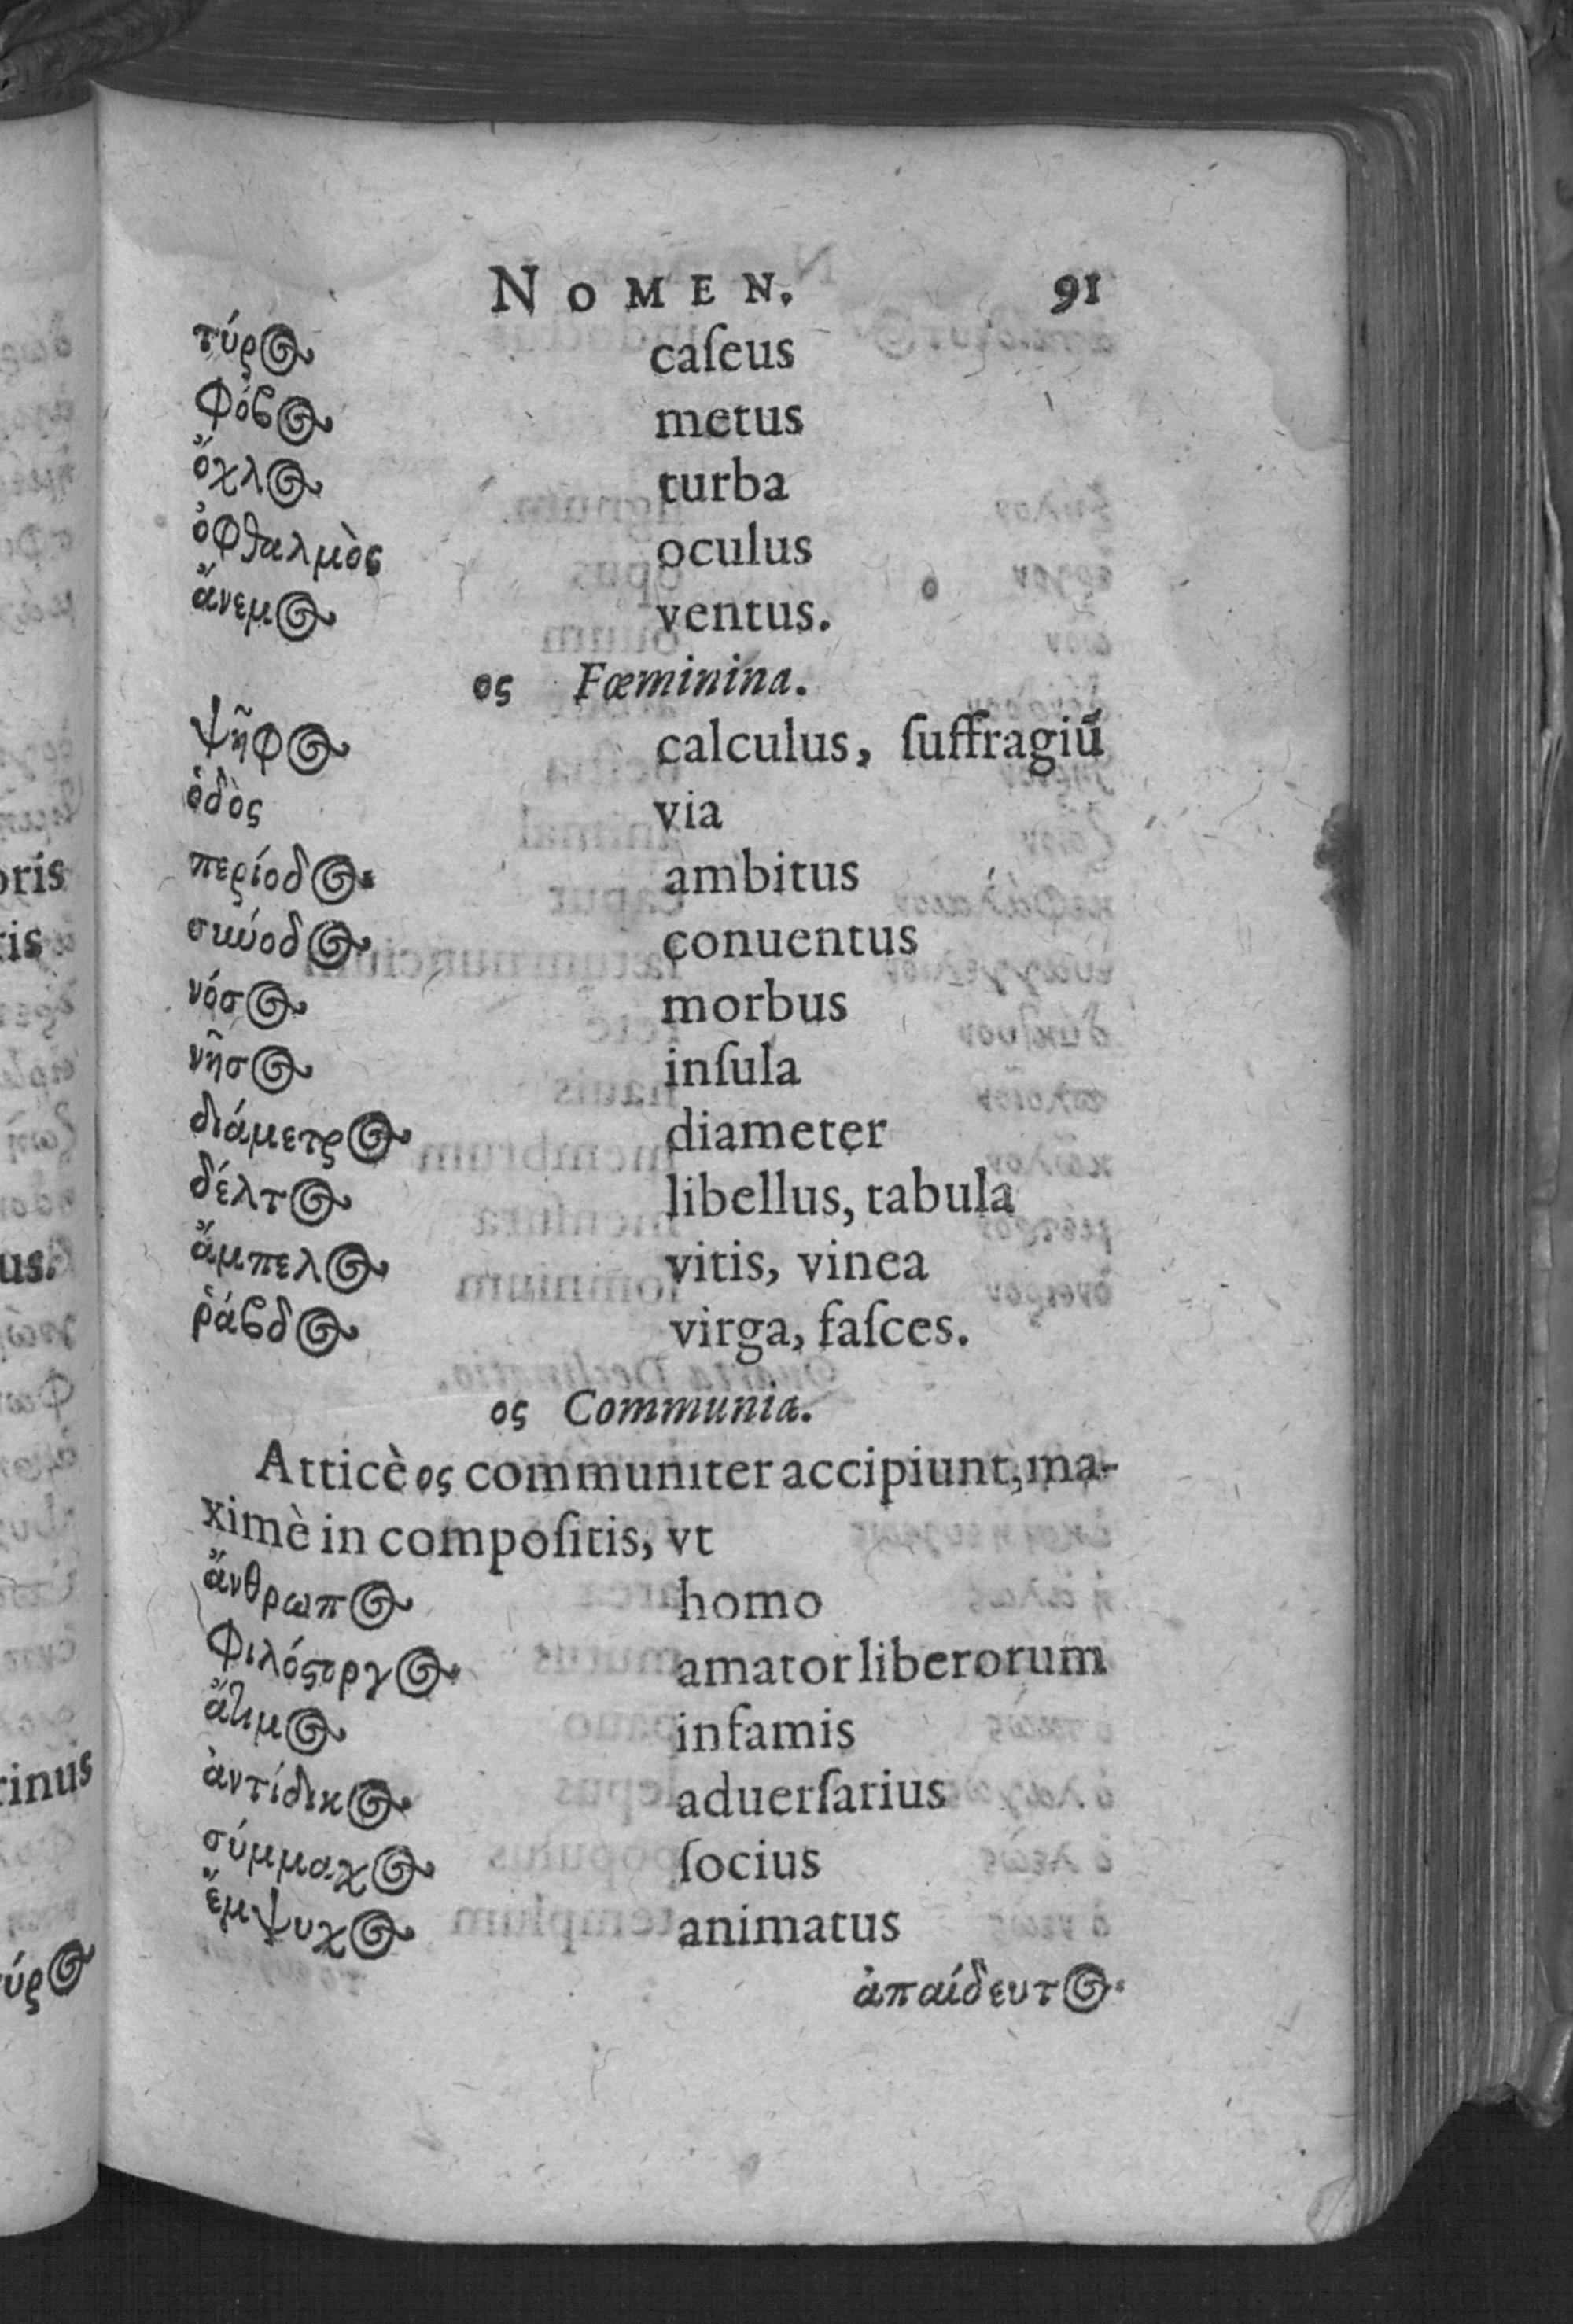 NOMEN. 91
τύρος caſeus
φόβος metus
ὄχλος turba
ὀφθαλμὸς oculus
ἄνεμος ventus.
ος Fœminina.
ψῆφος calculus, ſuffragiū
ὁδὸς via
περίοδος ambitus
σωύοδος conuentus
νόσος morbus
νῆσος inſula
διάμετρος diameter
δέλτος libellus, tabula
ἄμπελος vitis, vinea
ῥάβδος virga, faſces.
ος Communia.
Atticè ος communiter accipiunt, ma-
ximè in compoſitis, vt
ἄνθρωπος homo
φιλόϛοργος amator liberorum
ἄτιμος infamis
ἀντίδικος aduerſarius
σύμμαχος ſocius
ἔμψυχος animatus
ἀπαίδευτος
oris
tis
us.
rinus
τύρος